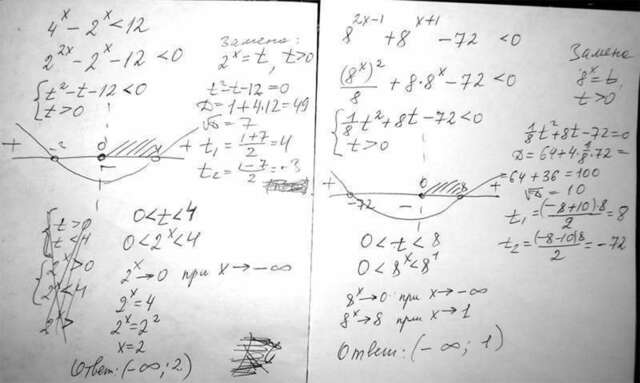 4^x - 2^x < 12
2^2x - 2^x - 12 < 0
{ t² - t - 12 < 0
t > 0
Замена:
2^x = t, t > 0
t² - t - 12 = 0
D = 1 + 4·12 = 49
√D = 7
t₁ = (1+7)/2 = 4
t₂ = (1-7)/2 = -3
+ 0 - +
{ t > 0
t < 4
{ 2^x > 0
2^x < 4
2^x >
0 < t < 4
0 < 2^x < 4
2^x → 0 при x → -∞
2^x = 4
2^x = 2²
x = 2
Ответ: (-∞; 2)
8^2x-1 + 8^x+1 - 72 < 0
(8^x)²/8 + 8·8^x - 72 < 0
{ 1/8 t² + 8t - 72 < 0
t > 0
Замена
8^x = t,
t > 0
1/8 t² + 8t - 72 = 0
D = 64 + 4·1/8·72 =
= 64 + 36 = 100
√D = 10
t₁ = (-8+10)·8/2 = 8
t₂ = (-8-10)8/2 = -72
+ -72 - 0 8 +
0 < t < 8
0 < 8^x < 8¹
8^x → 0 при x → -∞
8^x → 8 при x → 1
Ответ: (-∞; 1)